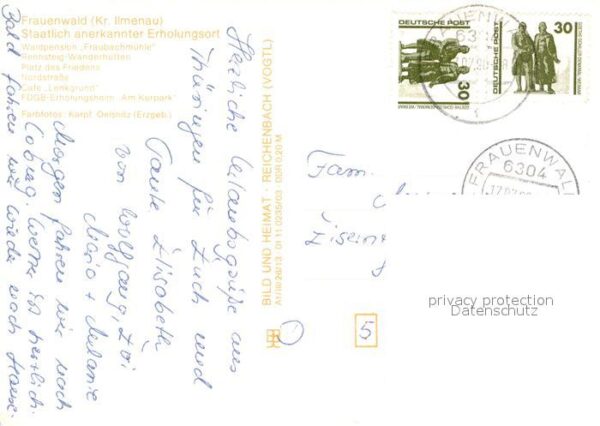 Frauenwald (Kr. Ilmenau)
Staatlich anerkannter Erholungsort
Waldpension „Fraubachmühle"
Rennsteig-Wanderhütten
Platz des Friedens
Nordstraße
Café „Lenkgrund"
FDGB-Erholungsheim „Am Kurpark"
Farbfotos: Kämpf, Oelsnitz (Erzgeb.)
Herzliche Urlaubsgrüße aus
Thüringen für Euch und
Tante Elisabeth
von Wolfgang,
Maria + Melanie
Morgen fahren wir nach
Coburg. Wetter ist herrlich.
Bald fahren wir wieder nach Hause.
BILD UND HEIMAT · REICHENBACH (VOGTL)
DDR 0,20 M
DEUTSCHE POST
30
GOETHE-SCHILLER-DENKMAL · WEIMAR
DEUTSCHE POST
30
GOETHE-SCHILLER-DENKMAL · WEIMAR
FRAUENWALD
6304
Fam.
5
privacy protection
Datenschutz